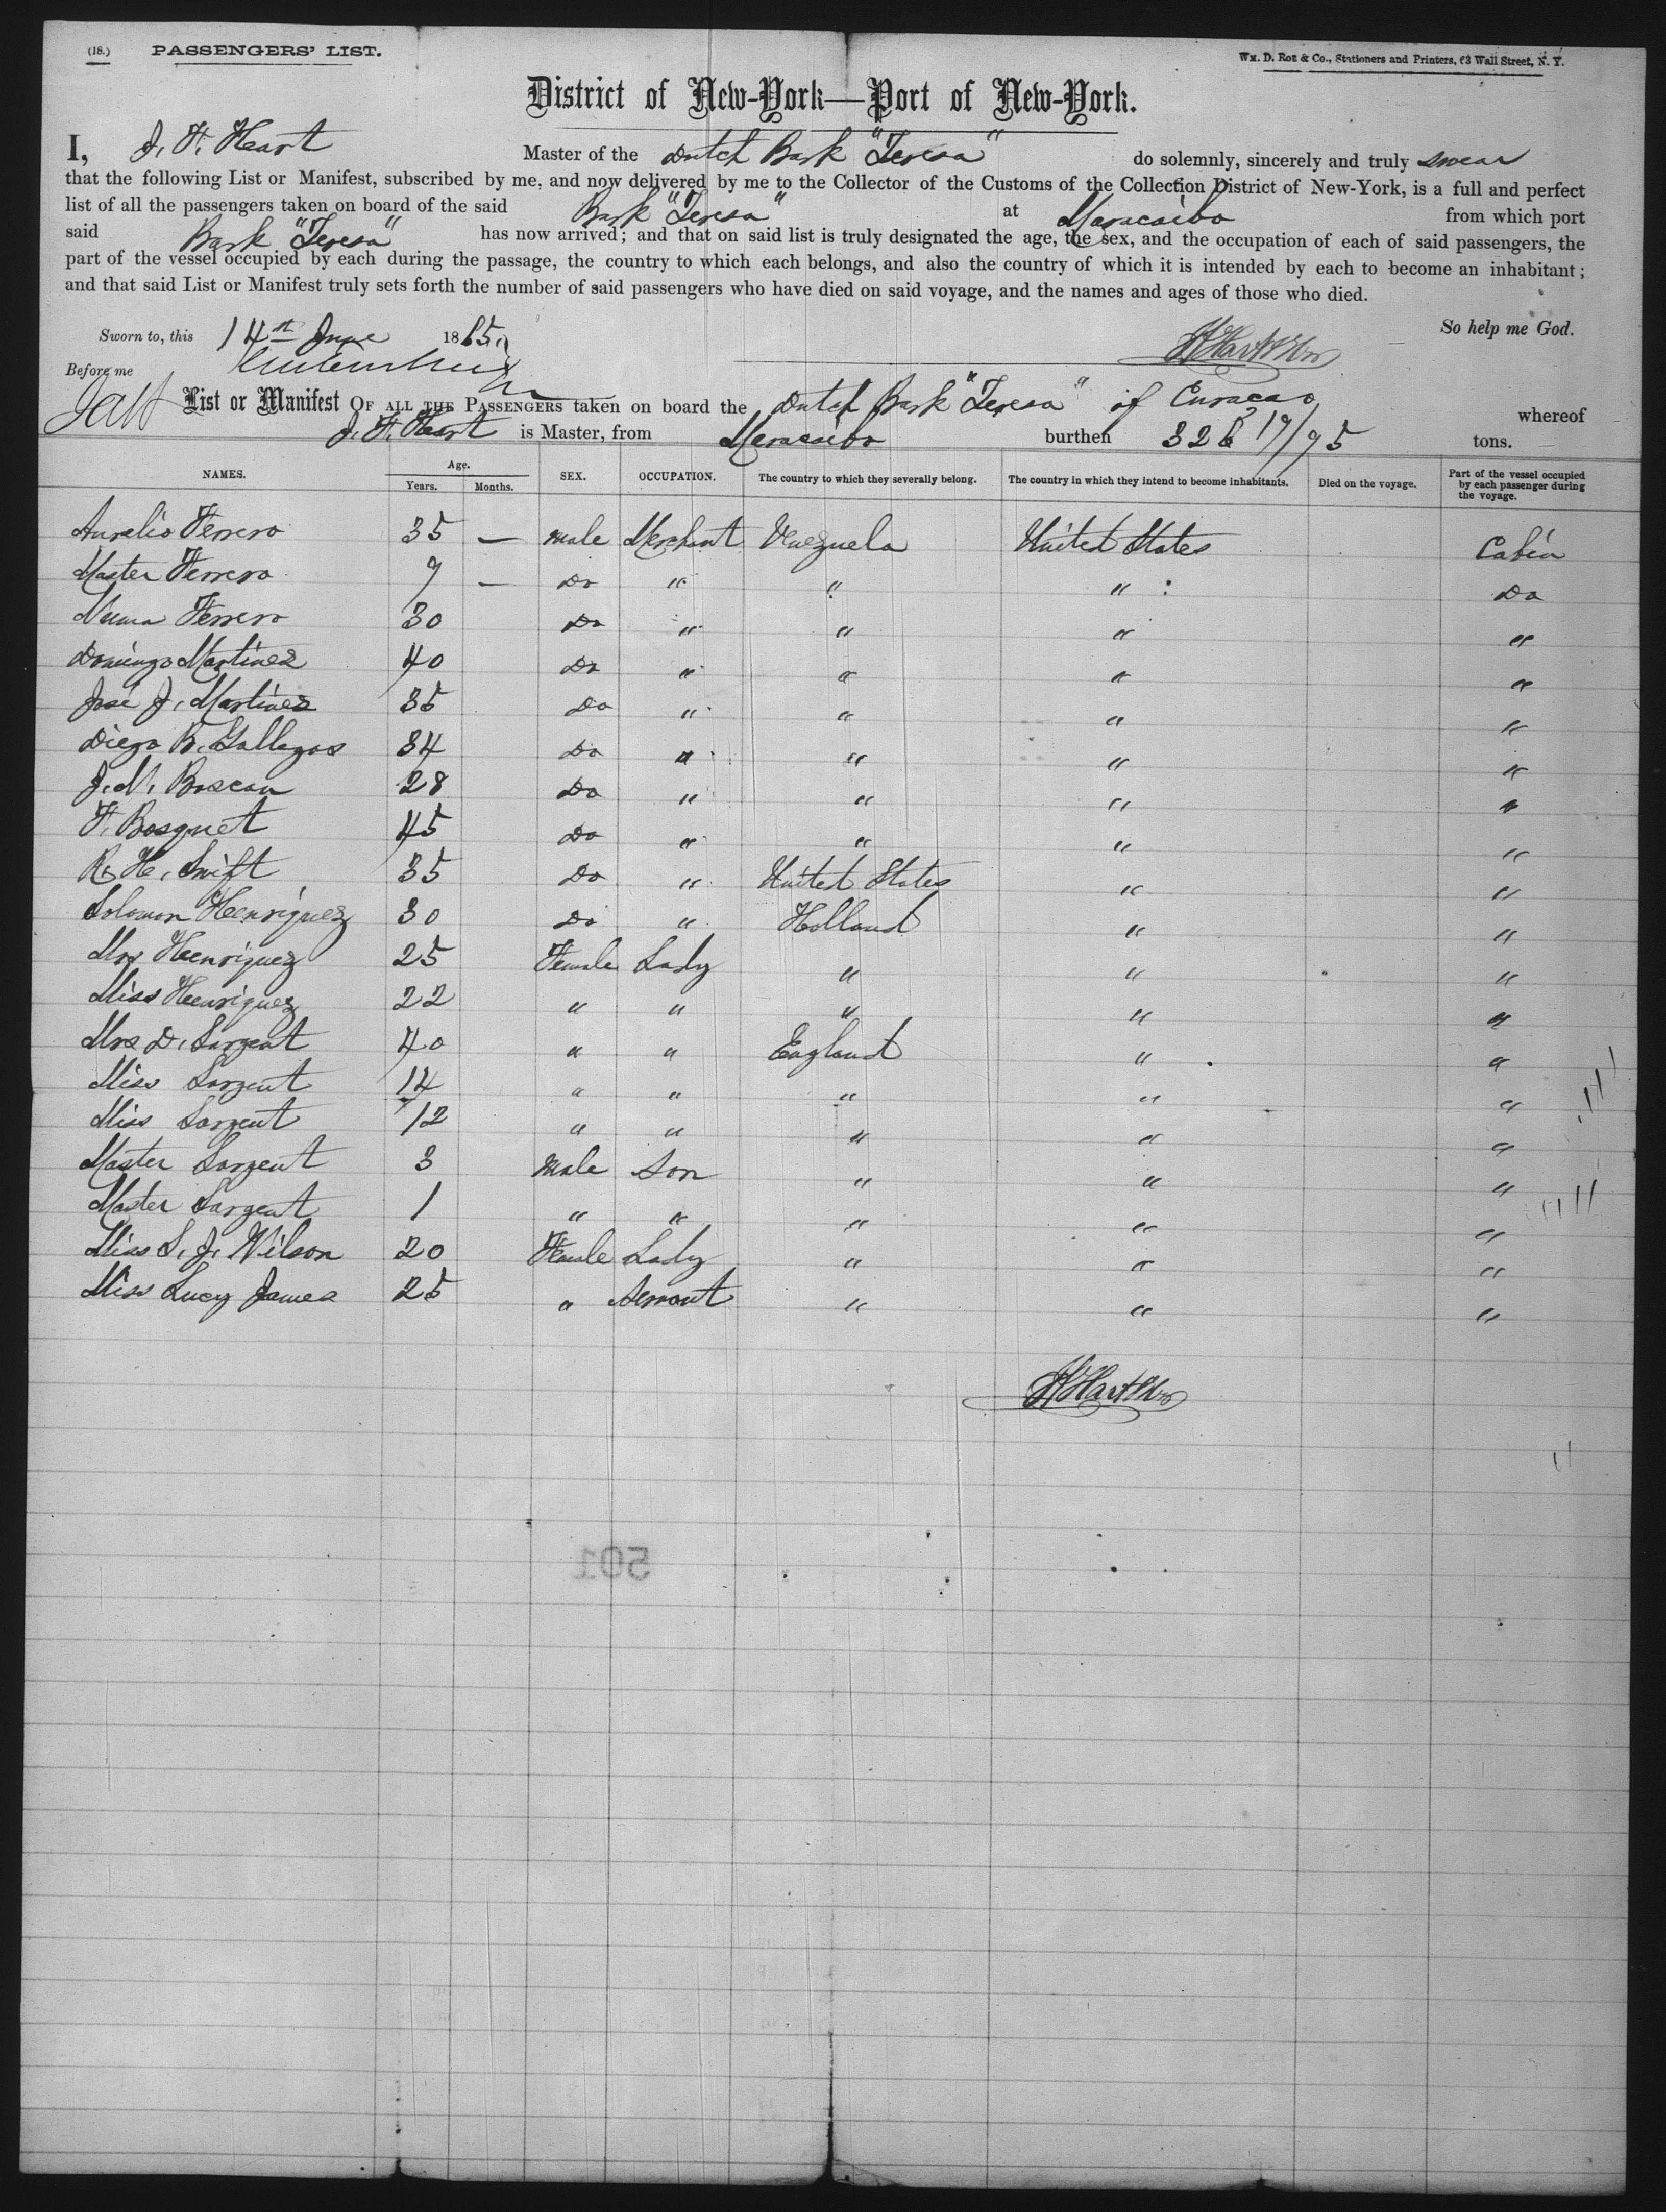 (18.) PASSENGERS' LIST. Wm. D. Roe & Co., Stationers and Printers, 63 Wall Street, N. Y.
District of New-York—Port of New-York.
I, J. H. Heart Master of the Dutch Bark "Teresa" do solemnly, sincerely and truly swear
that the following List or Manifest, subscribed by me, and now delivered by me to the Collector of the Customs of the Collection District of New-York, is a full and perfect
list of all the passengers taken on board of the said Bark "Teresa" at Maracaibo from which port
said Bark "Teresa" has now arrived; and that on said list is truly designated the age, the sex, and the occupation of each of said passengers, the
part of the vessel occupied by each during the passage, the country to which each belongs, and also the country of which it is intended by each to become an inhabitant;
and that said List or Manifest truly sets forth the number of said passengers who have died on said voyage, and the names and ages of those who died.
So help me God.
Sworn to, this 14st June 1865
Before me
List or Manifest OF ALL THE PASSENGERS taken on board the Dutch Bark "Teresa" of Curacao whereof
J. H. Heart is Master, from Maracaibo burthen 326 19/95 tons.
NAMES. Age. Years. Months. SEX. OCCUPATION. The country to which they severally belong. The country in which they intend to become inhabitants. Died on the voyage. Part of the vessel occupied by each passenger during the voyage.
Aurelio Ferrero 35 — male Merchant Venezuela United States Cabin
Master Ferrero 9 — Do " " " Do
Numa Ferrero 30 Do " " " "
Domingo Martinez 40 Do " " " "
José J. Martinez 35 Do " " " "
Diego B. Gallegos 34 Do " " " "
J. M. Boscan 28 Do " " " "
F. Bosquet 45 Do " " " "
R. H. Swift 35 Do " United States " "
Solomon Henriquez 30 Do " Holland " "
Mrs Henriquez 25 Female Lady " " "
Miss Henriquez 22 " " " " "
Mrs D. Sargent 40 " " England " "
Miss Sargent 14 " " " " "
Miss Sargent 12 " " " " "
Master Sargent 3 male Son " " "
Master Sargent 1 " " " " "
Miss S. J. Wilson 20 Female Lady " " "
Miss Lucy James 25 " Servant " " "
501